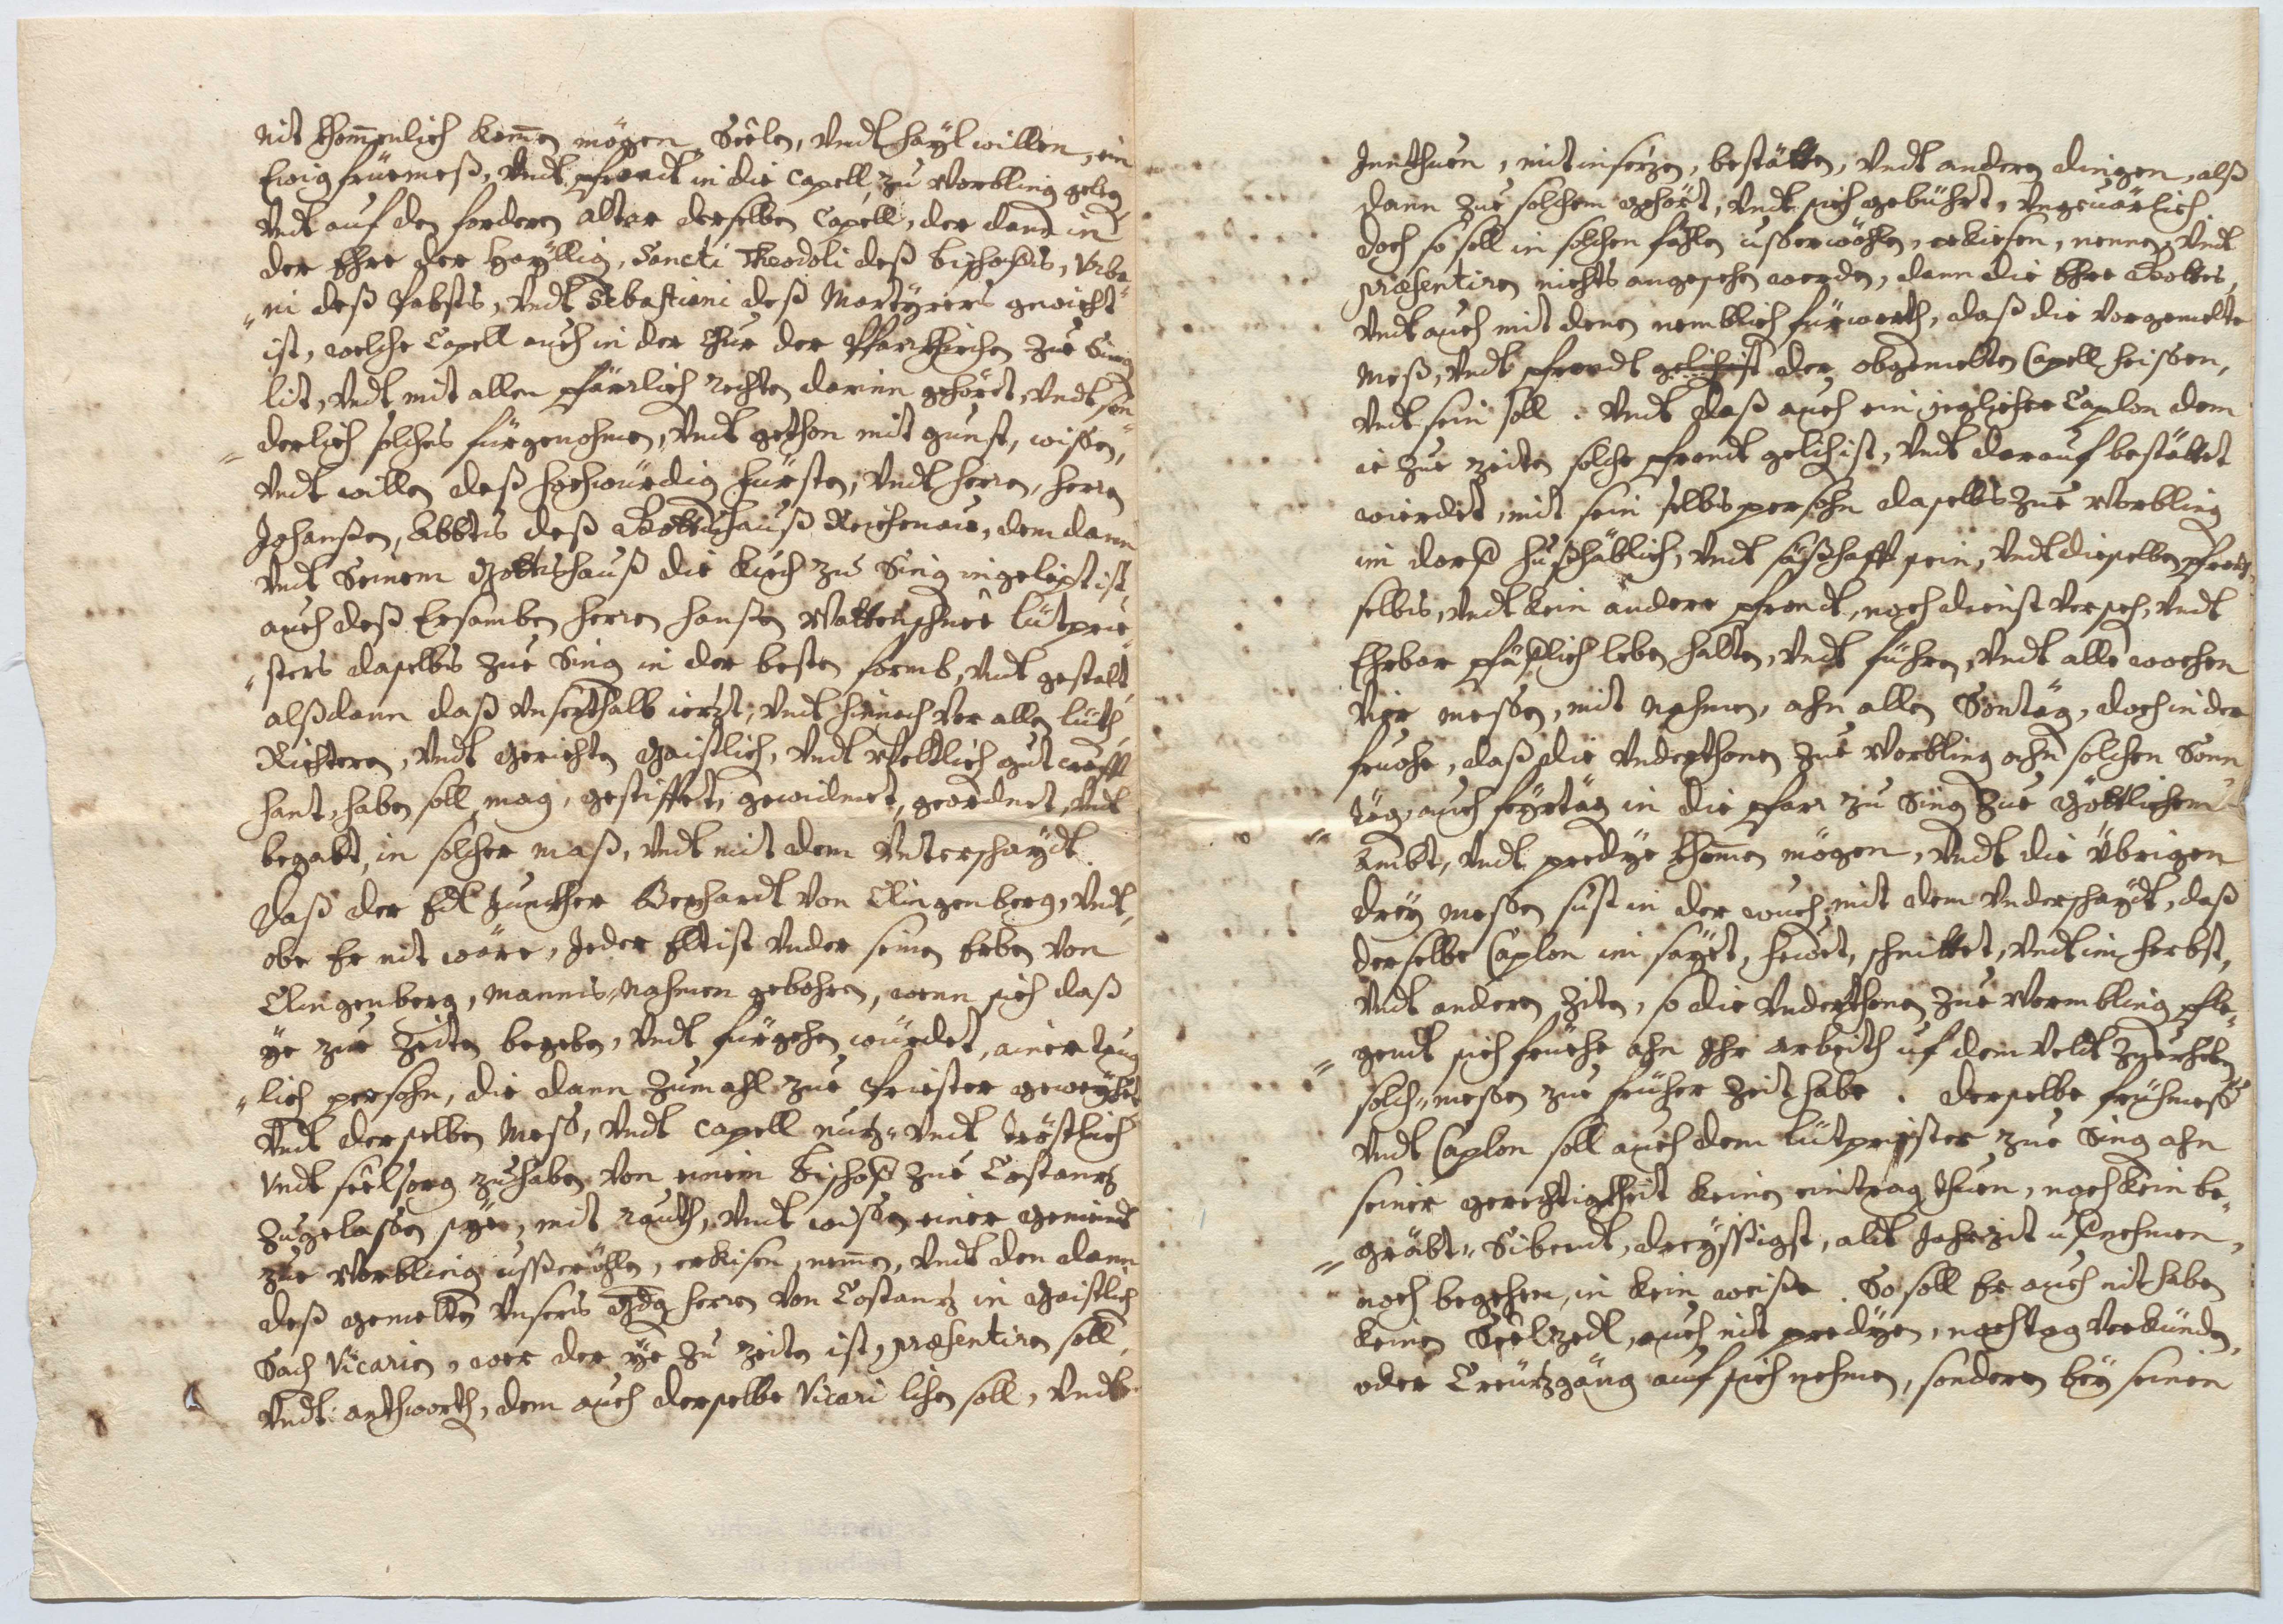 nit khom̃enlich kom̃en mögen, Seelen, vndt hayl willen, ein
Ewig früemeß, vndt pfrondt in die Capell zu Worbling geleg
vndt auf den forderen altar derselben Capell, der dann in
der Ehre der Hayllig, Sancti Theodoli deß bischofs, Vrba„
„ni deß Pabsts, vndt Sebastiani deß Martyrers geweicht
ist, welche Capell auch in der Chur der Pfarrkhirchen zue Sing
lit, vndt mit allen pfärrlich rechten darinn gehört, vndt son„
„derlich solches fürgenohmen, vndt gethon mit gunst, wissen,
vndt willen deß hochwürdig fürsten, vndt herren, herren
Johanßen, Abbtes deß Gottshauß Reichenaue, dem dann
vndt Seinem Gottshauß die kürch zu Sing ingeleipt ist,
auch deß Ersamben herren Hanßen Wattenschnee lütprie„
„sters daselbs zue Sing in der besten formb, vndt gestalt,
alßdann daß vnserthalb ietzt, vndt hienach vor allen lüth,
Richteren, vndt gerichten gaistlich, vndt weltlich gut crafft
hant, haben soll, mag, gestifftet, gewidmet, geordnet, vndt
begabt, in solcher maß, vndt mit dem Vnterschaydt.
Daß der Edl Junkher Bernhardt von Clingenberg, vndt
obe Er nit wäre, Jeder Eltist vnder seinen Erben von
Clingenberg, mannes„nahmen gebohren, wenn sich daß
ye zue Zeiten begeben, vndt fürgehen würdet, ainer taug„
„lich persohn, die dann zumahl zue Priester geweyhet
vndt derselben Mess, vndt Capell nutz„ vndt tröstlich
vndt seelsorg zu haben von einem bischof zue Costantz
zugelassen sye, mit rauth, vndt wissen einer gemeindt
zue Worbling usserwöhlen, erkisen, nem̃en, vndt den dann
deß gemelten vnsers Gdg herren von Costantz in gaistlich
Sach Vicarien, wer der ye zu zeiten ist, præsentiren soll,
vndt anthworth, dem auch derselbe Vicari lihen soll, vndt
Innthuen, mit insetzen, bestätten, vndt anderen dingen, alß
dann zue solchem gehört, vndt sich gebührt, vngeuärlich
doch so soll in solchen fählen usserwöhlen, erkiesen, nennen, vndt
præsentiren nichts angesehen werden, dann die Ehre Gottes,
vndt auch mit denen nemblich fürworth, daß die vorgemelte
Meß, vndt pfrondt gelichist der obgemelten Capell heissen,
vndt sein soll. Vndt daß auch ein jeglicher Caplon dem
ie zue zeiten solche pfrondt gelichist, vndt darauf bestättet
würdet, mit sein selbs persohn daselbs zue Worbling
im dorf hußhäblich, vndt säßhafft sein, vndt dieselben pfrondt
selbs, vndt kein andere pfrondt, noch dienst verseh, vndt
Ehrbar pfäfflich leben halten, vndt führen, vndt alle wochen
vier messen, mit nahmen, ahn allen Sontäg, doch in der
fruohe, daß die vnderthonen zue Worbling ahn solchen Sonn„
„täg, auch feyrtäg in die pfarr zu Sing zue göttlichem
Ambt, vndt predye khom̃en mögen, vndt die übrigen
drey messen sust in der wuch, mit dem vnderschaydt, daß
derselbe Caplon im säyet, hewet, schnittet, vndt im herbst,
vndt anderen ziten, so die vnderthonen zue Wormbling pfle„
„gendt sich fruehe ahn Ihr arbeith uf dem veldt zuerheben
solch„messen zue früher zeit habe. Derselbe frühmess
vndt Caplon soll auch dem lütpriester zue Sing ahn
seiner gerechtigkheit keinen eintrag thuen, noch kein be„
„gräbt„ Sibendt, dreyssigst, aldt Jahrzit ufnehmen,
noch begehen, in kein weise. So soll Er auch nit haben
keinen Seelzedl, auch nit predyen, noch tag verkünden,
oder Creutzgäng auf sich nehmen, sonderen bey seinen